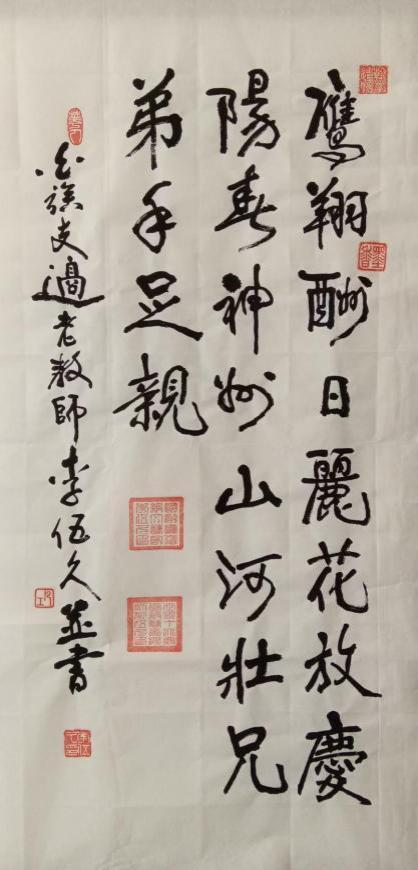 鷹翔酬日麗花放慶
陽春神州山河壯兄
弟手足親
白族支邊老教師李伍久並書